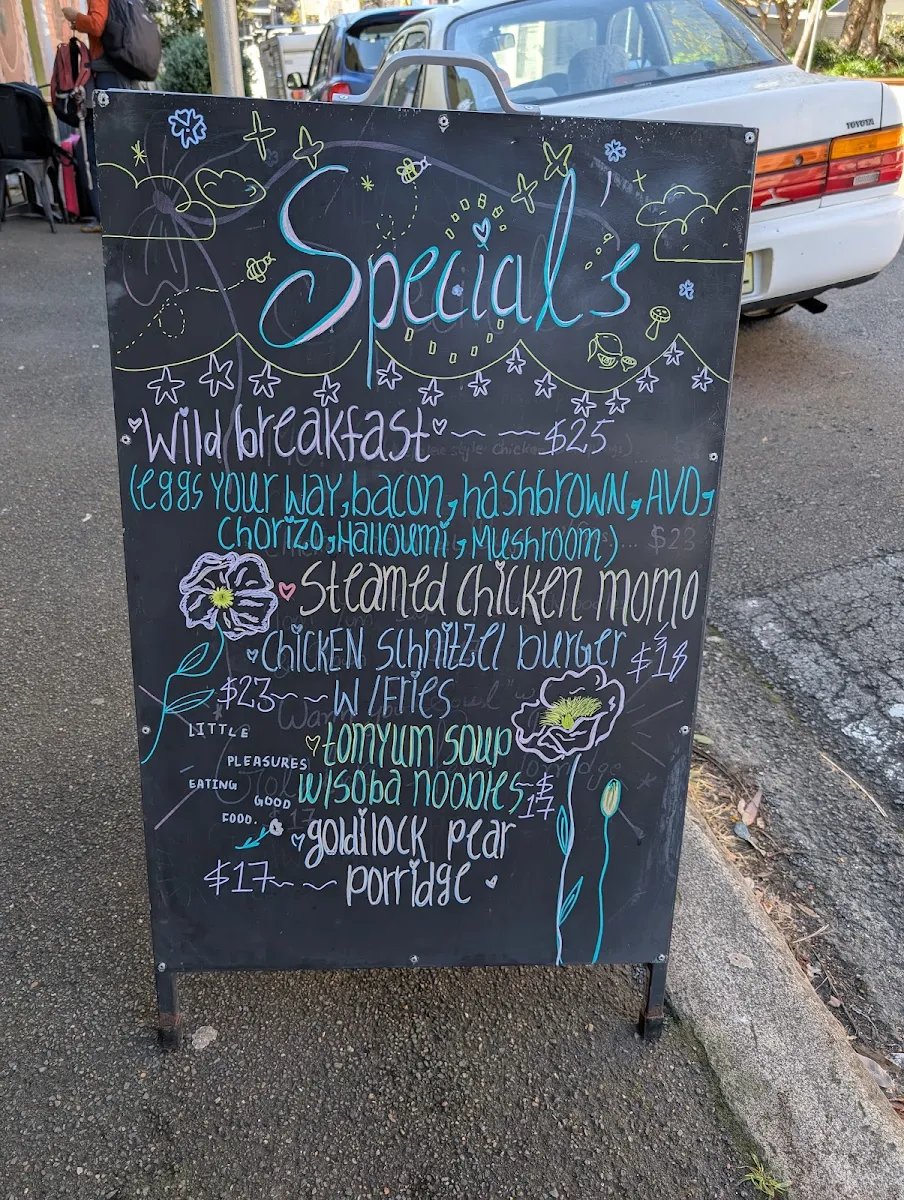 TOYOTA
Specials
Wild breakfast ~ ~ ~ $25
(eggs YOUR WAY, bacon, hashbrown, AVO,
Chorizo, Halloumi, Mushroom)
Steamed Chicken momo
$18
CHICKEN Schnitzel burger
$23 ~ ~ W/Fries
LITTLE
PLEASURES
EATING
GOOD
FOOD.
tomyum soup
w/soba noodles ~ $
17
goldilock pear
$17 ~ ~ porridge